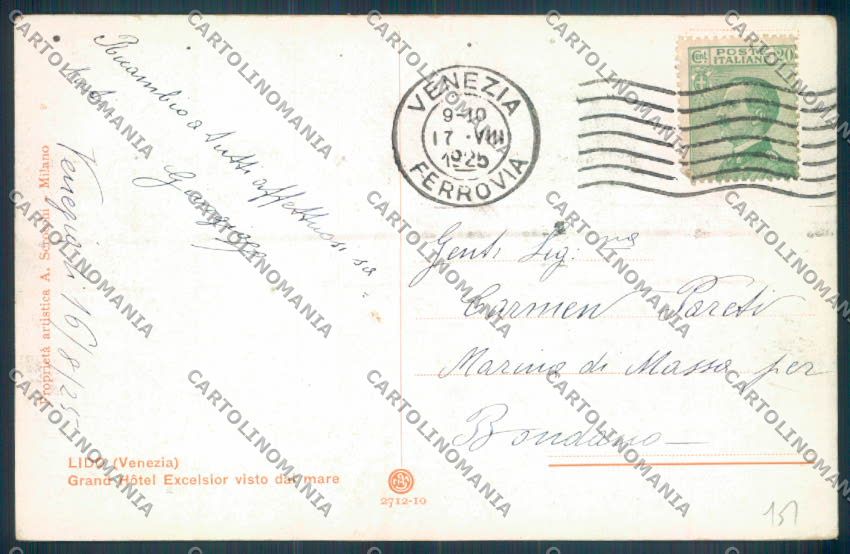 Ricambio a tutti affettuosi sa=
luti
Venezia li 16/8/25
Proprietà artistica A. Milano
VENEZIA
9-10
17 VIII
1925
FERROVIA
POSTE
ITALIANE
Cent. 20
Gent. Sig.na
Carmen Pareti
Marina di Massa per
Bondano
LIDO (Venezia)
Grand Hôtel Excelsior visto dal mare
2712-10
151
CARTOLINOMANIA